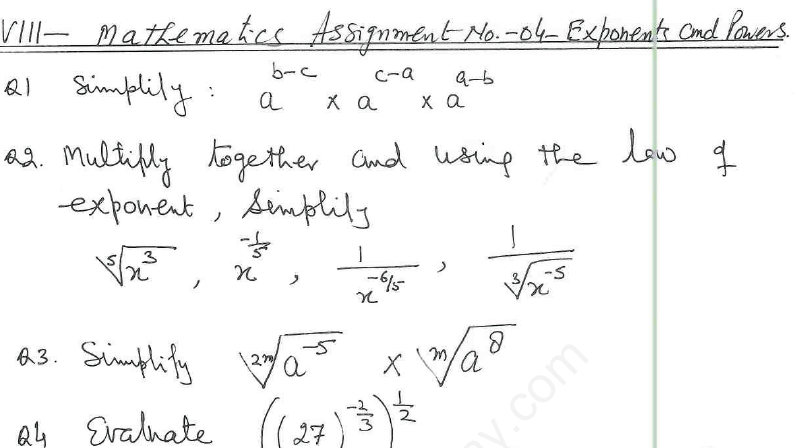 VIII- Mathematics Assignment No.-04- Exponents and Powers.
Q1 Simplify : a^(b-c) × a^(c-a) × a^(a-b)
Q2. Multiply together and using the law of
exponent, Simplify
⁵√x³ , x^(-1/5) , 1/x^(-6/5) , 1/³√x⁻⁵
Q3. Simplify ²ᵐ√a⁻⁵ × ᵐ√a⁸
Q4 Evaluate ((27)^(-2/3))^(1/2)
ny.com